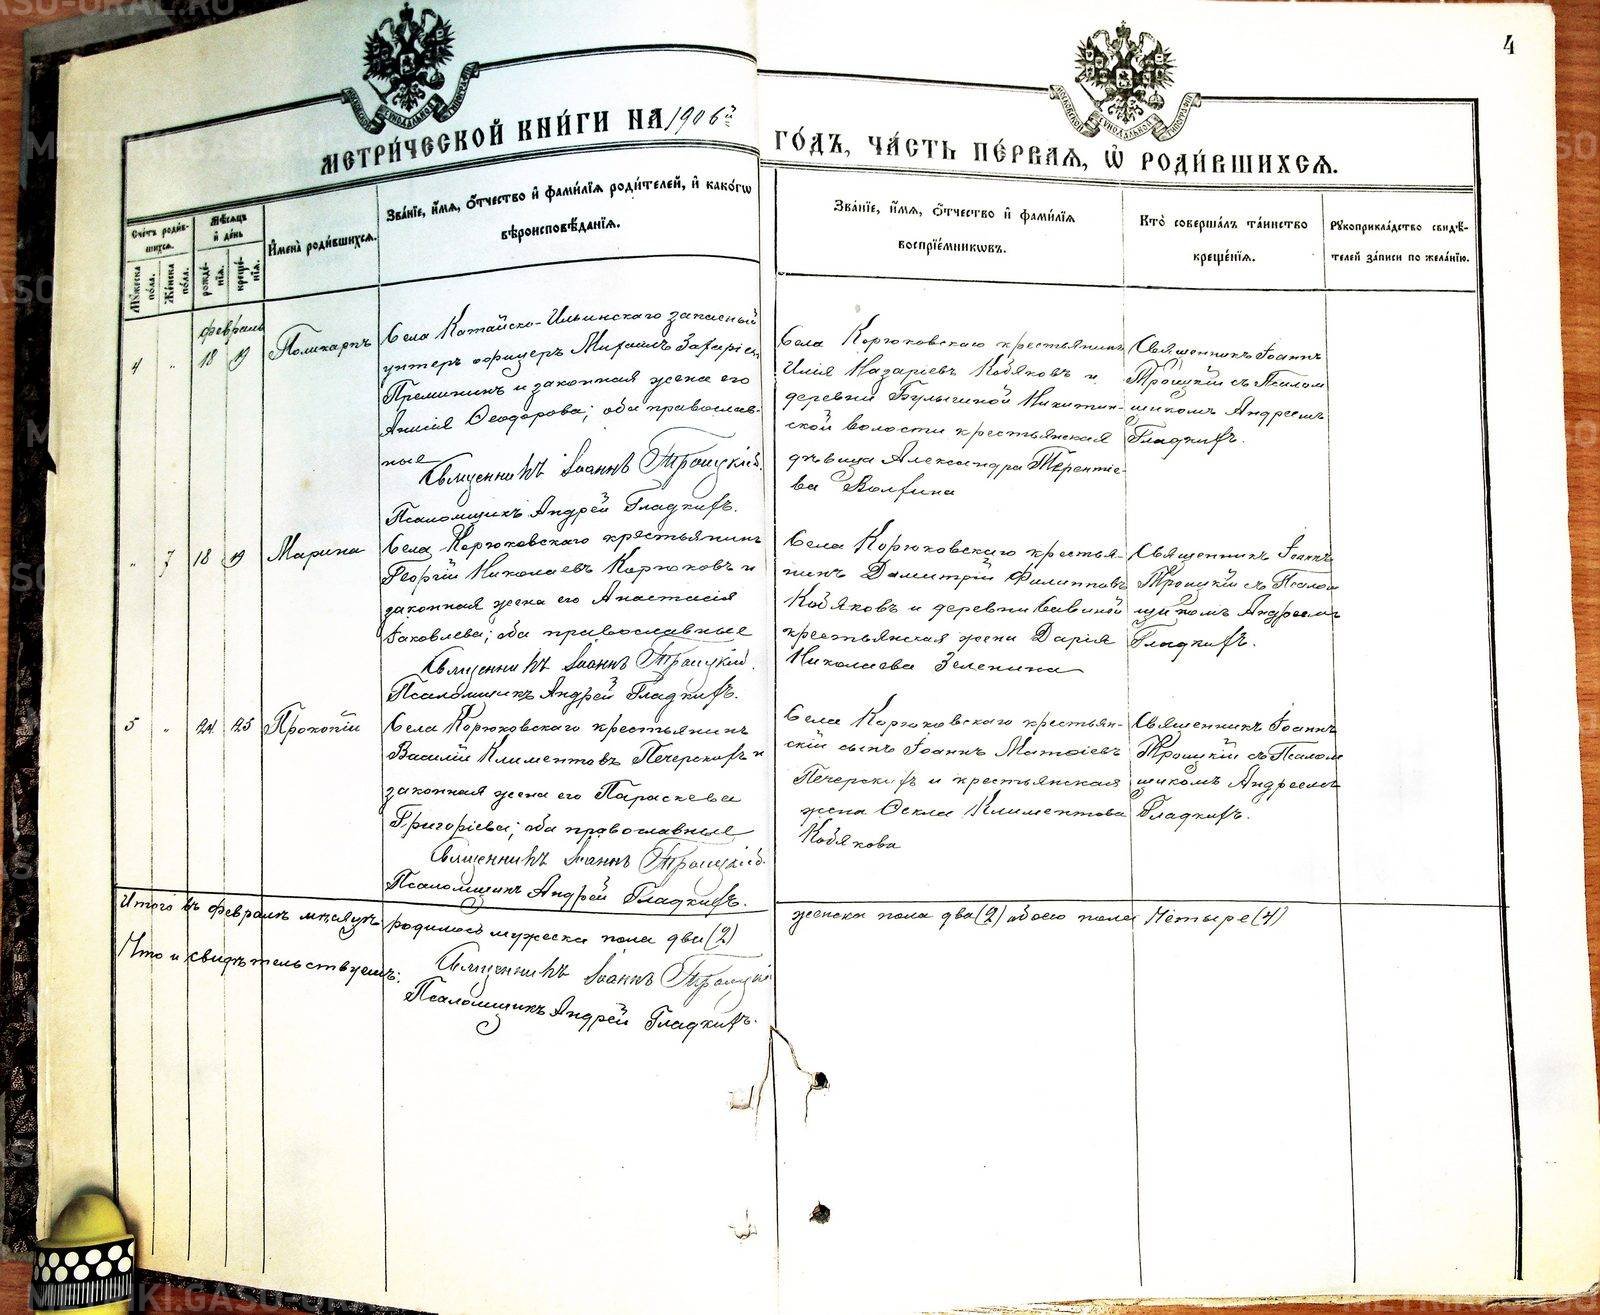 4
МЕТРИ́ЧЕСКОЙ КНИ́ГИ НА 1906й
ГО́ДЪ, ЧА́СТЬ ПЕ́РВАЯ, Ѡ РОДИ́ВШИХСЯ.
Сче́тъ роди́в-
шихся.
Мꙋ́жеска по́ла.
Же́нска по́ла.
Мѣ́сяцъ
и̂ де́нь
рожде́-
нїя.
креще́-
нїя.
И҆мена̀ роди́вшихся.
Зва́нїе, и҆́мя, ѻ҆́тчество и҆ фами́лїя роди́телей, и҆ како́гѡ
вѣроисповѣ́данїя.
Зва́нїе, и҆́мя, ѻ҆́тчество и҆ фами́лїя
воспрїе́мникѡвъ.
Кто̀ соверша́лъ та́инство
креще́нїя.
Рꙋкоприкла́дство свидѣ́-
телей за́писи по жела́нїю.
февраль
4 " 18 19 Поликарпъ
Села Катайско-Ильинскаго запасный
унтеръ офицеръ Михаилъ Захаріевъ
Преминин и законная жена его
Анисія Ѳеодорова; оба православ-
ные
Священникъ Іоаннъ Троицкій.
Псаломщикъ Андрей Гладкихъ.
Села Корюковскаго крестьянинъ
Илія Назаріевъ Кобяковъ и
деревни Булыгиной Никитин-
ской волости крестьянская
дѣвица Александра Терентіе-
ва Волхина
Священникъ Іоаннъ
Троицкій съ Псалом
щикомъ Андреемъ
Гладкихъ.
" 7 18 19 Марина
Села Корюковскаго крестьянинъ
Георгій Николаевъ Корюковъ и
законная жена его Анастасія
Іаковлева; оба православные
Священникъ Іоаннъ Троицкій.
Псаломщикъ Андрей Гладкихъ.
Села Корюковскаго крестья-
нинъ Димитрій Филипповъ
Кобяковъ и деревни Савиной
крестьянская жена Дарія
Николаева Зеленина
Священникъ Іоаннъ
Троицкій съ Псалом
щикомъ Андреемъ
Гладкихъ.
5 " 24 25 Прокопій
Села Корюковскаго крестьянинъ
Василій Климентовъ Печерскихъ и
законная жена его Параскева
Григоріева; оба православные
Священникъ Іоаннъ Троицкій.
Псаломщикъ Андрей Гладкихъ.
Села Корюковскаго крестьян-
скій сынъ Іоаннъ Матѳіевъ
Печерскихъ и крестьянская
жена Ѳекла Климентова
Кобякова
Священникъ Іоаннъ
Троицкій съ Псалом
щикомъ Андреемъ
Гладкихъ.
Итого въ февралѣ мѣсяцѣ родилось мужеска пола два (2) женска пола два (2) обоего пола четыре (4)
Что и свидѣтельствуемъ: Священникъ Іоаннъ Троицкій
Псаломщикъ Андрей Гладкихъ.